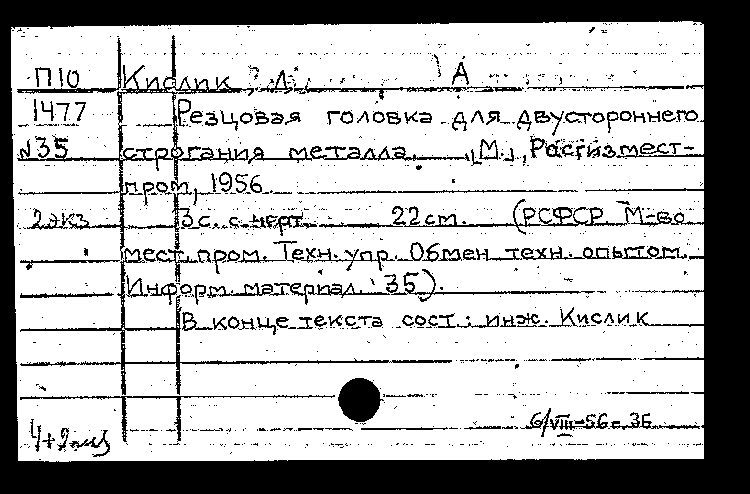 П10 Кислик А
1477 Резцовая головка для двустороннего
№35 строгания металла. [М.], Росгизмест-
пром, 1956.
2 экз 3 с. с черт. 22 cm. (РСФСР. М-во
мест. пром. Техн. упр. Обмен техн. опытом.
Информ. материал. 35).
В конце текста сост.: инж. Кислик
6/VIII-56 г. 36